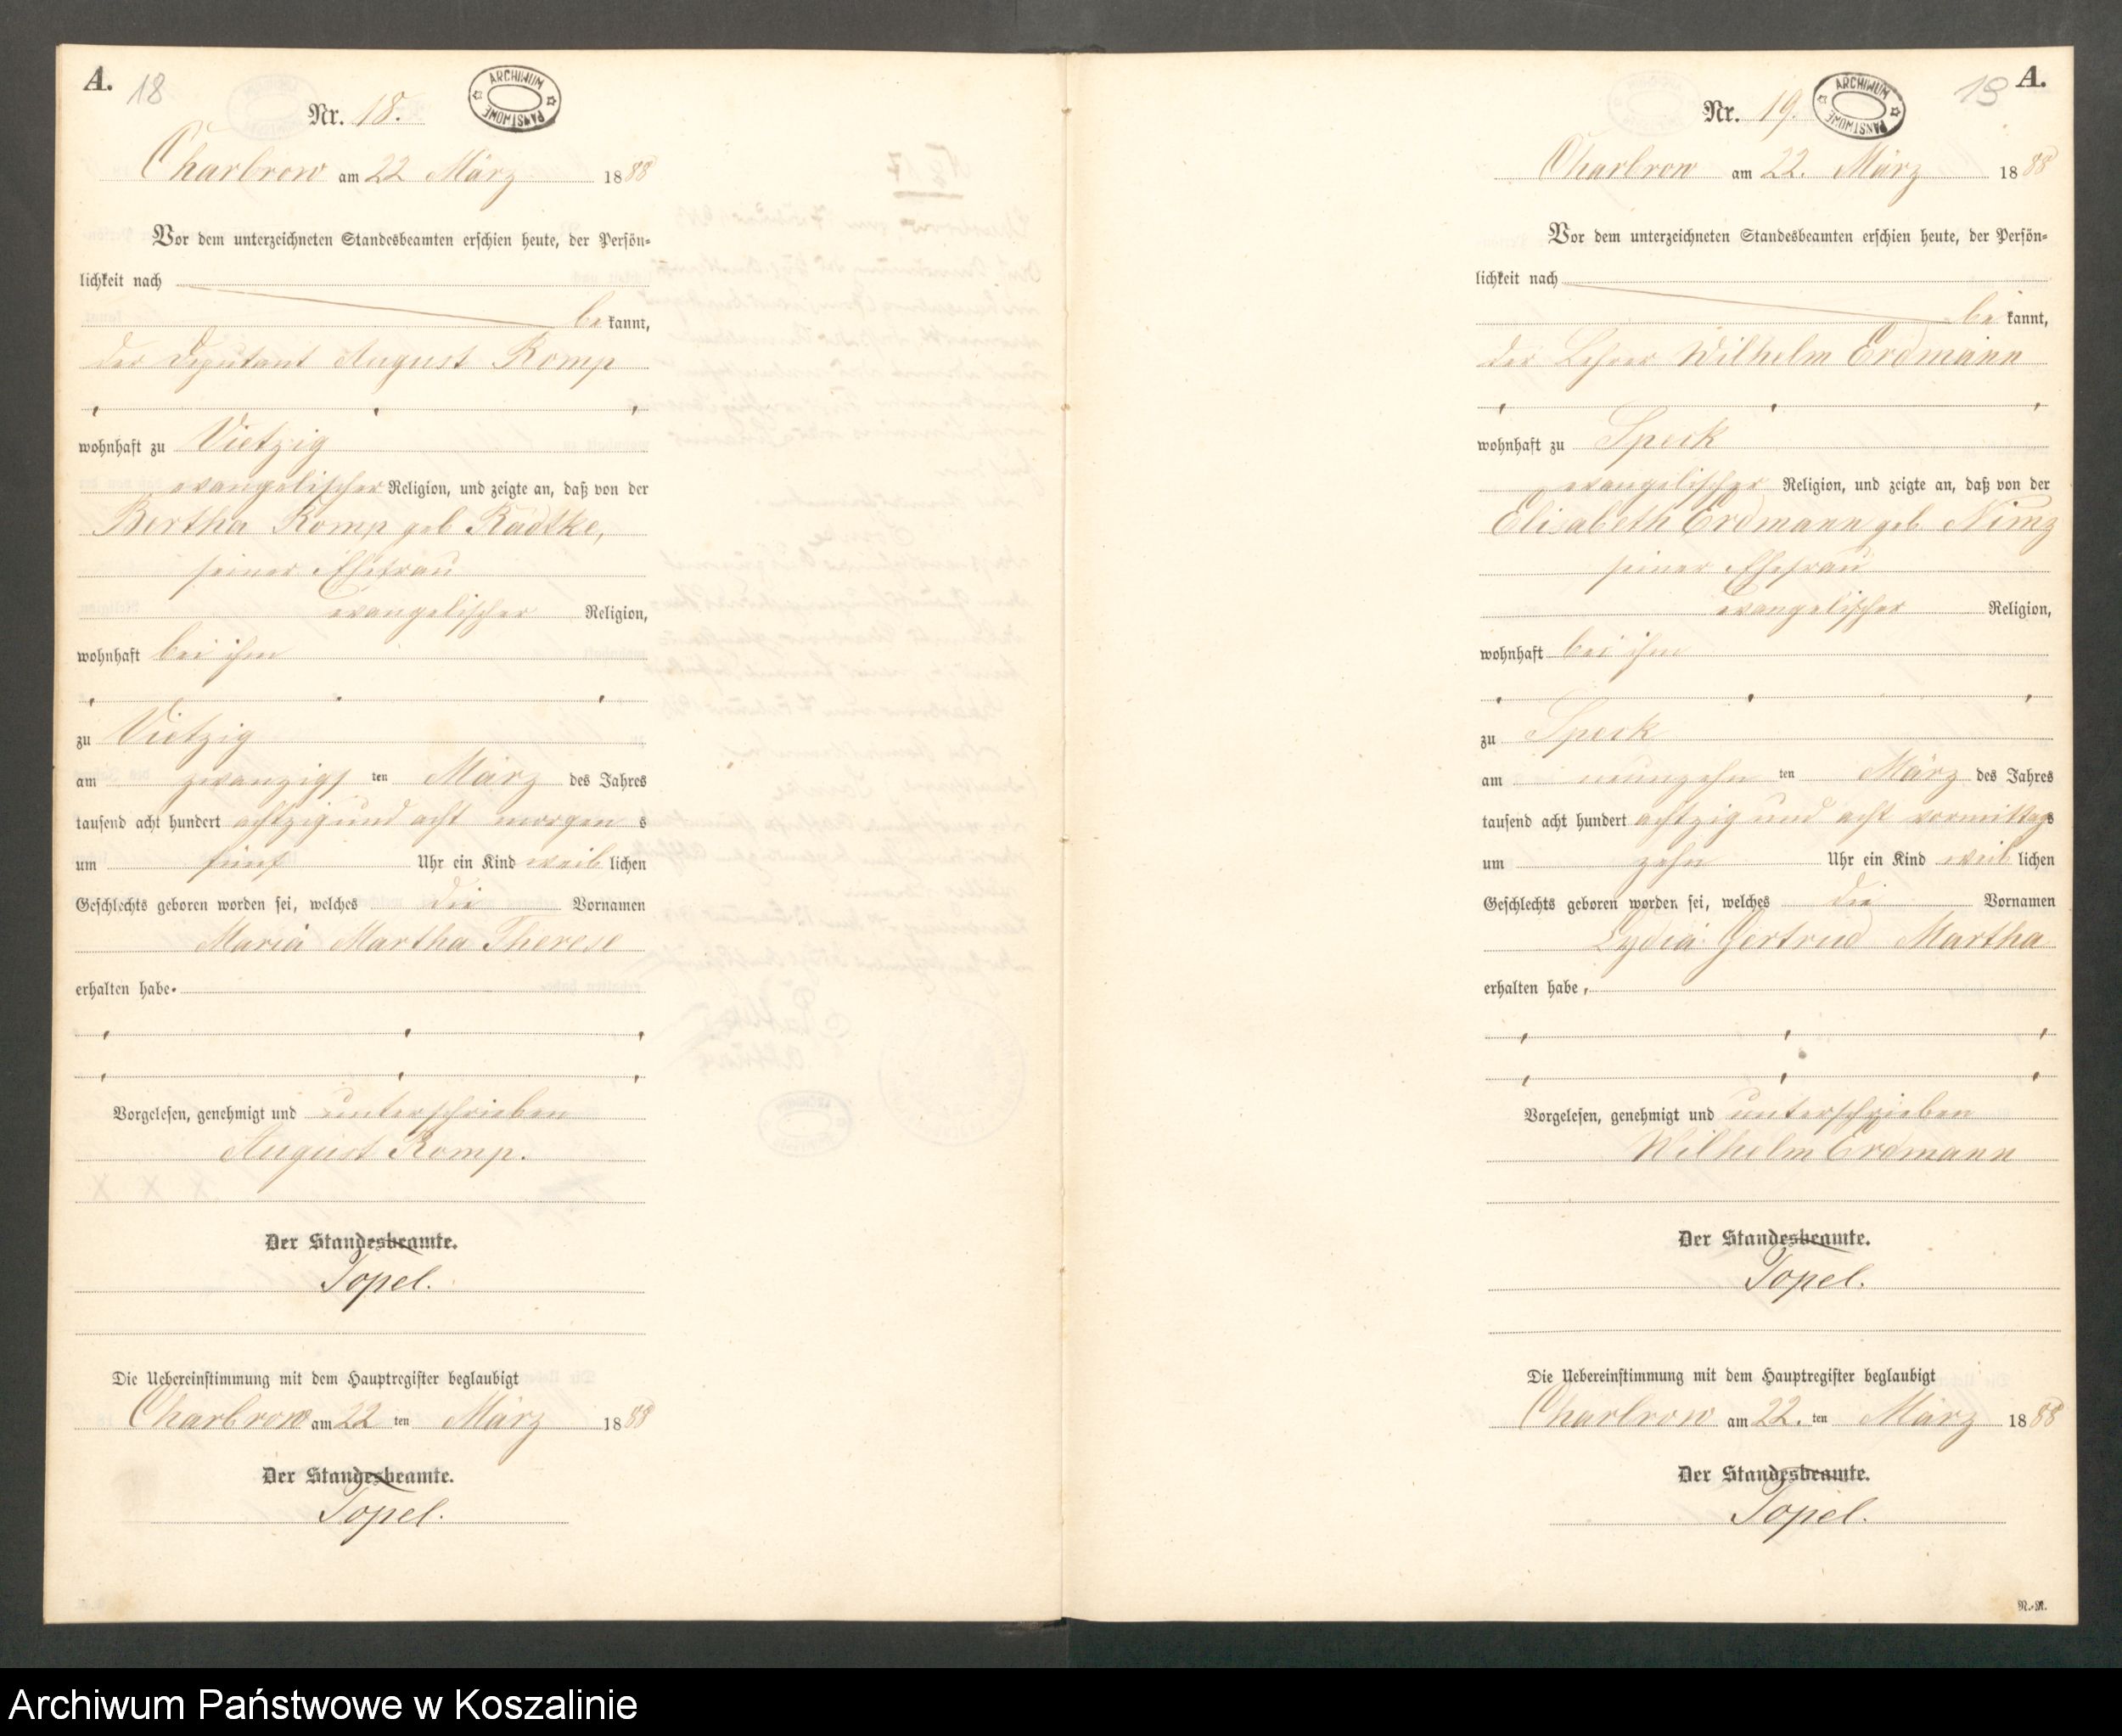 A. 18
Nr. 18.
ARCHIWUM PAŃSTWOWE
Charbrow am 22 März 1888
Vor dem unterzeichneten Standesbeamten erschien heute, der Persön-
lichkeit nach
bekannt,
der Deputant August Romp
wohnhaft zu Vietzig
evangelischer Religion, und zeigte an, daß von der
Bertha Romp geb Radtke,
seiner Ehefrau
evangelischer Religion,
wohnhaft bei ihm
zu Vietzig
am zwanzigsten März des Jahres
tausend acht hundert achtzig und acht morgens
um fünf Uhr ein Kind weiblichen
Geschlechts geboren worden sei, welches die Vornamen
Maria Martha Therese
erhalten habe.
Vorgelesen, genehmigt und unterschrieben
August Romp.
Der Standesbeamte.
Topel.
Die Uebereinstimmung mit dem Hauptregister beglaubigt
Charbrow am 22 ten März 1888
Der Standesbeamte.
Topel.
19 A.
Nr. 19.
ARCHIWUM PAŃSTWOWE
Charbrow am 22. März 1888
Vor dem unterzeichneten Standesbeamten erschien heute, der Persön-
lichkeit nach
bekannt,
der Lehrer Wilhelm Erdmann
wohnhaft zu Speck
evangelischer Religion, und zeigte an, daß von der
Elisabeth Erdmann geb. Nimz
seiner Ehefrau
evangelischer Religion,
wohnhaft bei ihm
zu Speck
am neunzehnten März des Jahres
tausend acht hundert achtzig und acht vormittags
um zehn Uhr ein Kind weiblichen
Geschlechts geboren worden sei, welches die Vornamen
Lydia Gertrud Martha
erhalten habe,
Vorgelesen, genehmigt und unterschrieben
Wilhelm Erdmann
Der Standesbeamte.
Topel.
Die Uebereinstimmung mit dem Hauptregister beglaubigt
Charbrow am 22. ten März 1888
Der Standesbeamte.
Topel.
Archiwum Państwowe w Koszalinie